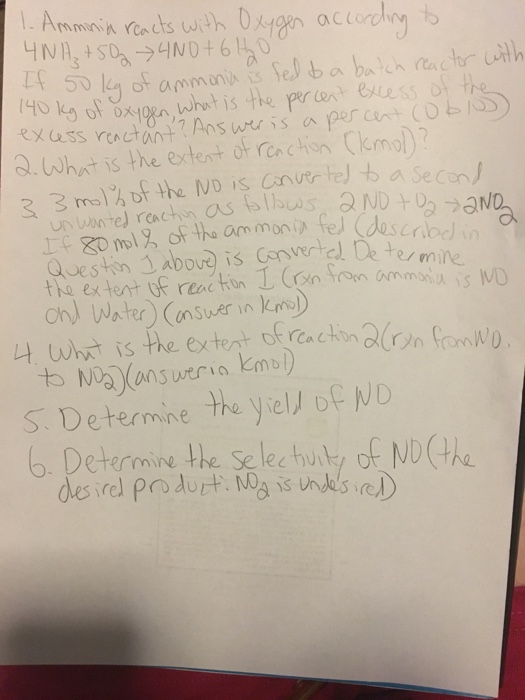 1. Ammonia reacts with Oxygen according to
4NH3 + 5O2 → 4NO + 6H2O
If 50 kg of ammonia is fed to a batch reactor with
140 kg of oxygen, what is the percent excess of the
excess reactant? Answer is a percent (0 to 100)
2. What is the extent of reaction (kmol)?
3 3 mol% of the NO is converted to a second
unwanted reaction as follows 2NO + O2 → 2NO2
If 80 mol% of the ammonia fed (described in
Question 1 above) is converted. Determine
the extent of reaction I (rxn from ammonia is NO
and Water) (answer in kmol)
4. What is the extent of reaction 2 (rxn from NO.
to NO2) (answer in kmol)
5. Determine the yield of NO
6. Determine the selectivity of NO (the
desired product. NO2 is undesired)